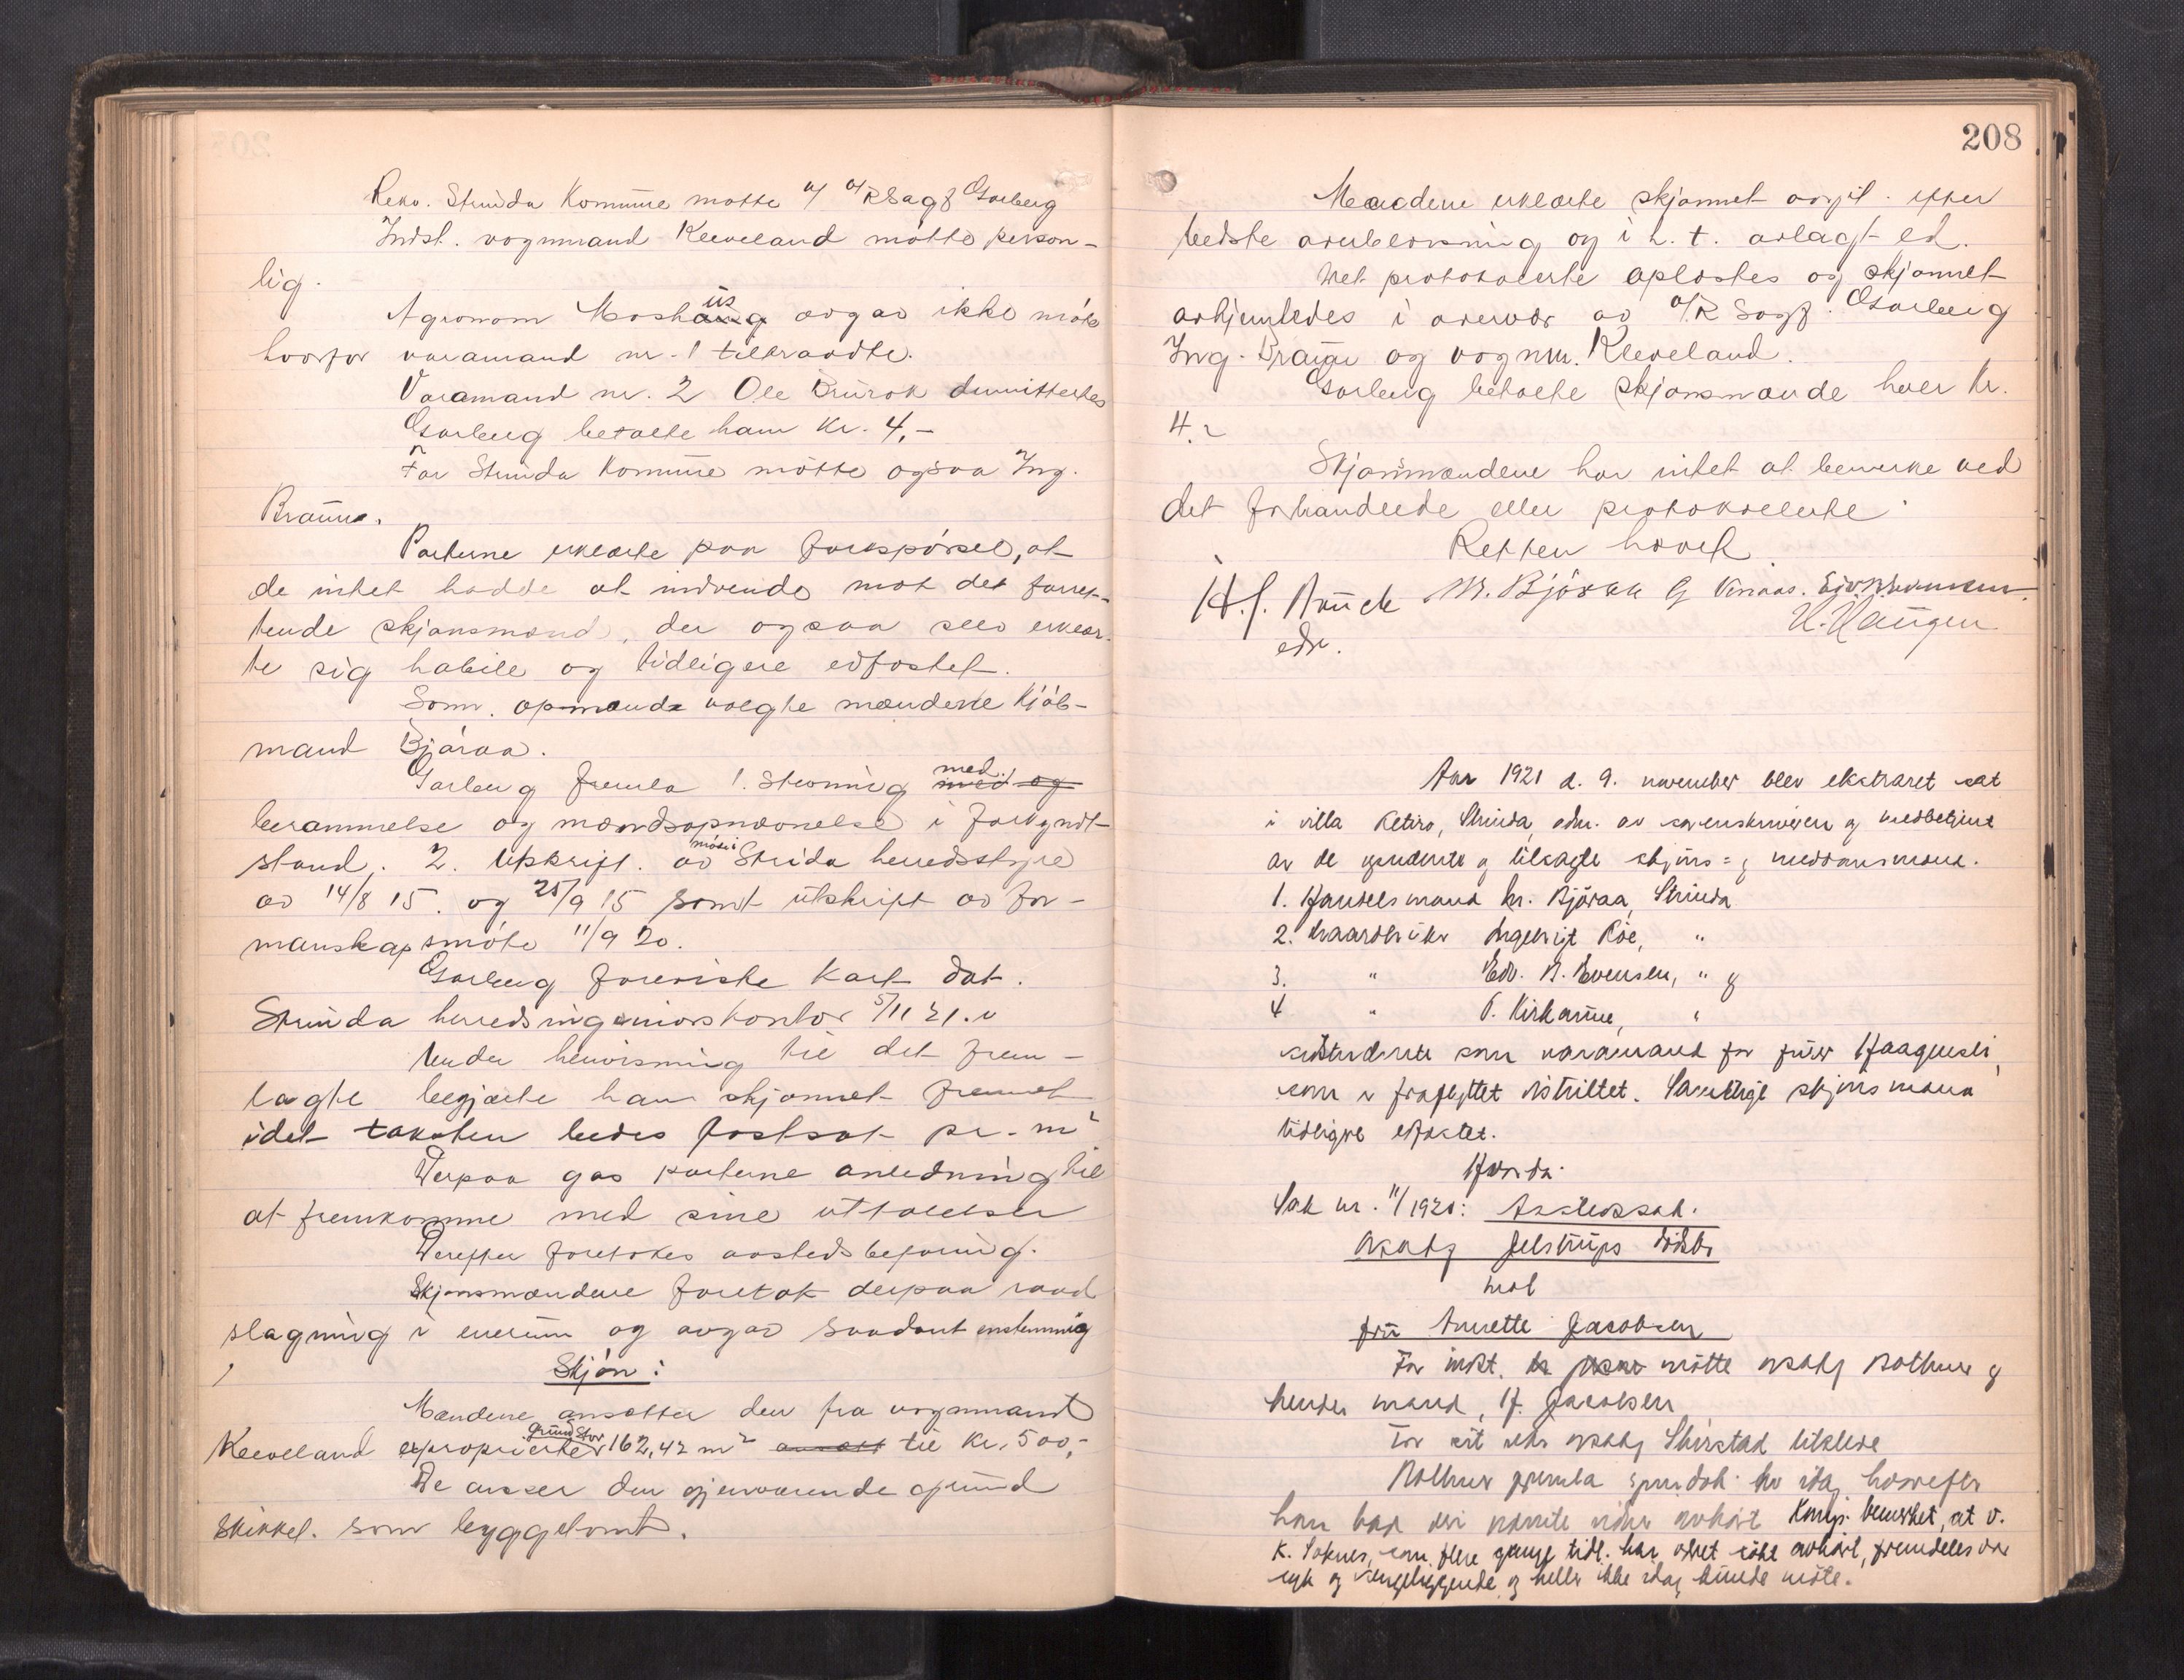 Rekv. Strinda Kommune møtte v/ o/RSagf Garberg
Indst. vognmand Kleveland møtte person-
lig.
Agronom Moshuus avgav ikke møte
hvorfor varamand nr. 1 tiltraadte.
Varamand nr. 2 Ole dimittertes
Garberg betalte ham Kr. 4,-
For Strinda Kommune møtte ogsaa Ing.
Braune.
Parterne erklærte paa forespørsel, at
de intet hadde at indvende mot det forret-
tende skjønsmænd, der ogsaa selv erklær-
te sig habile og tidligere edfæstet.
Som opmand valgte mændene Kjøb-
mand Bjøraa.
Garberg fremla 1. Stevning med
berammelse og mændsopnævnelse i forkyndt
stand. 2. Utskrift av møte i Strida herredsstyre
av 14/8 15. og 25/9 15 samt utskrift av for-
manskapsmøte 11/9 20.
Garberg foreviste kart dat.
Strinda herredsingeniørskontor 5/11 21.
Under henvisning til det frem-
lagte begjærte han skjønnet fremmet
idet taksten bedes fastsat pr. m²
Derpaa gas parterne anledning til
at fremkomme med sine uttalelser
Derefter foretokes aastedsbefaring.
Skjønsmændene foretok derpaa raad
slagning i enerum og avgav saadant enstemmig
Skjøn:
Mændene ansætter den fra vognmand
Kleveland eksproprierte grund stor 162,42 m² til Kr. 500,-
De anser den gjenværende grund
skikket som byggetomt.
208
Mændene erklærte skjønnet avgit efter
bedste overbevisning og i h. t. avlagt ed.
Det protokollerte oplæstes og skjønnet
avhjemledes i overvær av o/R Sagf. Garberg
Ing. Braune og vognm. Kleveland.
Garberg betalte skjønsmænde hver Kr.
4.-
Skjønsmændene har intet at bemerke ved
det forhandlede eller protokollerte
Retten hævet
H. J. Bauck M. Björaa Edv. N. Evensen
H. Haugen
edv.
Aar 1921 d. 9. november blev ekstraret sat
i villa Retiro, Strinda, adm. av sorenskriveren og medbetjent
av de opnævnte og tilsagte skjøns- og meddomsmænd.
1. Handelsmand M. Björaa, Strinda
2. Gaardbruker Ingebrigt Röe, "
3. " Edv. N. Evensen, " og
4 " P. Kirkaune, "
sidstnævnte som varamand for Haagensli,
som er fraflyttet distriktet. Samtlige skjønsmænd
tidligere edfæstet.
Hvorda:
Sak nr. 11/1920: Aastedssak.
Jelstrups dødsbo
mot
fru Annette Jacobsen
For indst. møtte Bothner og
hendes mand, H. Jacobsen
For sit møtte Skirstad tilstede
Bothner fremla idag, hvorefter
han bad nævnte vidne avhørt. bemerket, at v.
K. Saknes, som flere gange tidl. har været søkt avhørt, fremdeles var
syk og sengeliggende og heller ikke idag kunde møte.